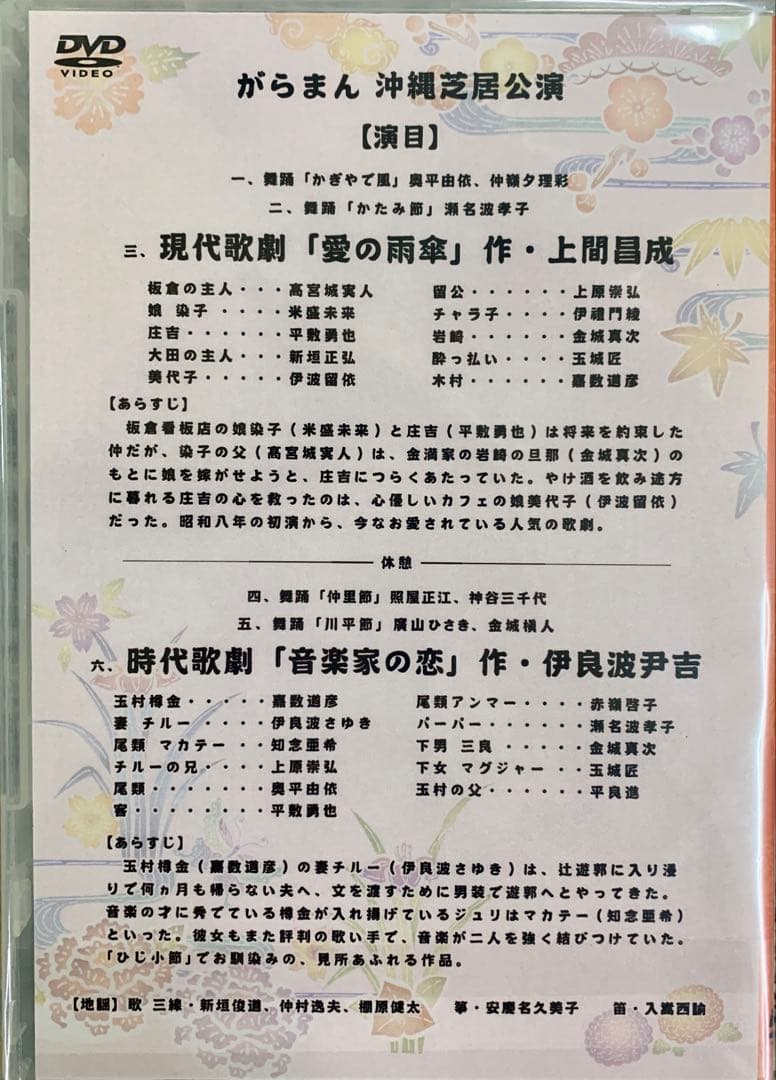 DVD
VIDEO
がらまん 沖縄芝居公演
【演目】
一、舞踊「かぎやで風」奥平由依、仲嶺夕理彩
二、舞踊「かたみ節」瀬名波孝子
三、現代歌劇「愛の雨傘」作・上間昌成
板倉の主人・・・高宮城実人
娘 染子 ・・・・米盛未来
庄吉・・・・・・平敷勇也
大田の主人・・・新垣正弘
美代子・・・・・伊波留依
留公・・・・・・上原崇弘
チャラ子・・・・伊禮門綾
岩崎・・・・・・金城真次
酔っ払い・・・・玉城匠
木村・・・・・・嘉数道彦
【あらすじ】
板倉看板店の娘染子（米盛未来）と庄吉（平敷勇也）は将来を約束した
仲だが、染子の父（高宮城実人）は、金満家の岩崎の旦那（金城真次）の
もとに娘を嫁がせようと、庄吉につらくあたっていた。やけ酒を飲み途方
に暮れる庄吉の心を救ったのは、心優しいカフェの娘美代子（伊波留依）
だった。昭和八年の初演から、今なお愛されている人気の歌劇。
休憩
四、舞踊「仲里節」照屋正江、神谷三千代
五、舞踊「川平節」廣山ひさき、金城槇人
六、時代歌劇「音楽家の恋」作・伊良波尹吉
玉村樽金・・・・・嘉数道彦
妻 チルー・・・・伊良波さゆき
尾類 マカテー・・知念亜希
チルーの兄・・・・上原崇弘
尾類・・・・・・・奥平由依
客・・・・・・・・平敷勇也
尾類アンマー・・・・赤嶺啓子
パーパー・・・・・・瀬名波孝子
下男 三良 ・・・・・金城真次
下女 マグジャー ・・玉城匠
玉村の父・・・・・・平良進
【あらすじ】
玉村樽金（嘉数道彦）の妻チルー（伊良波さゆき）は、辻遊郭に入り浸
りで何ヵ月も帰らない夫へ、文を渡すために男装で遊郭へとやってきた。
音楽の才に秀でている樽金が入れ揚げているジュリはマカテー（知念亜希）
といった。彼女もまた評判の歌い手で、音楽が二人を強く結びつけていた。
「ひじ小節」でお馴染みの、見所あふれる作品。
【地謡】歌 三線・新垣俊道、仲村逸夫、棚原健太 箏・安慶名久美子 笛・入嵩西諭